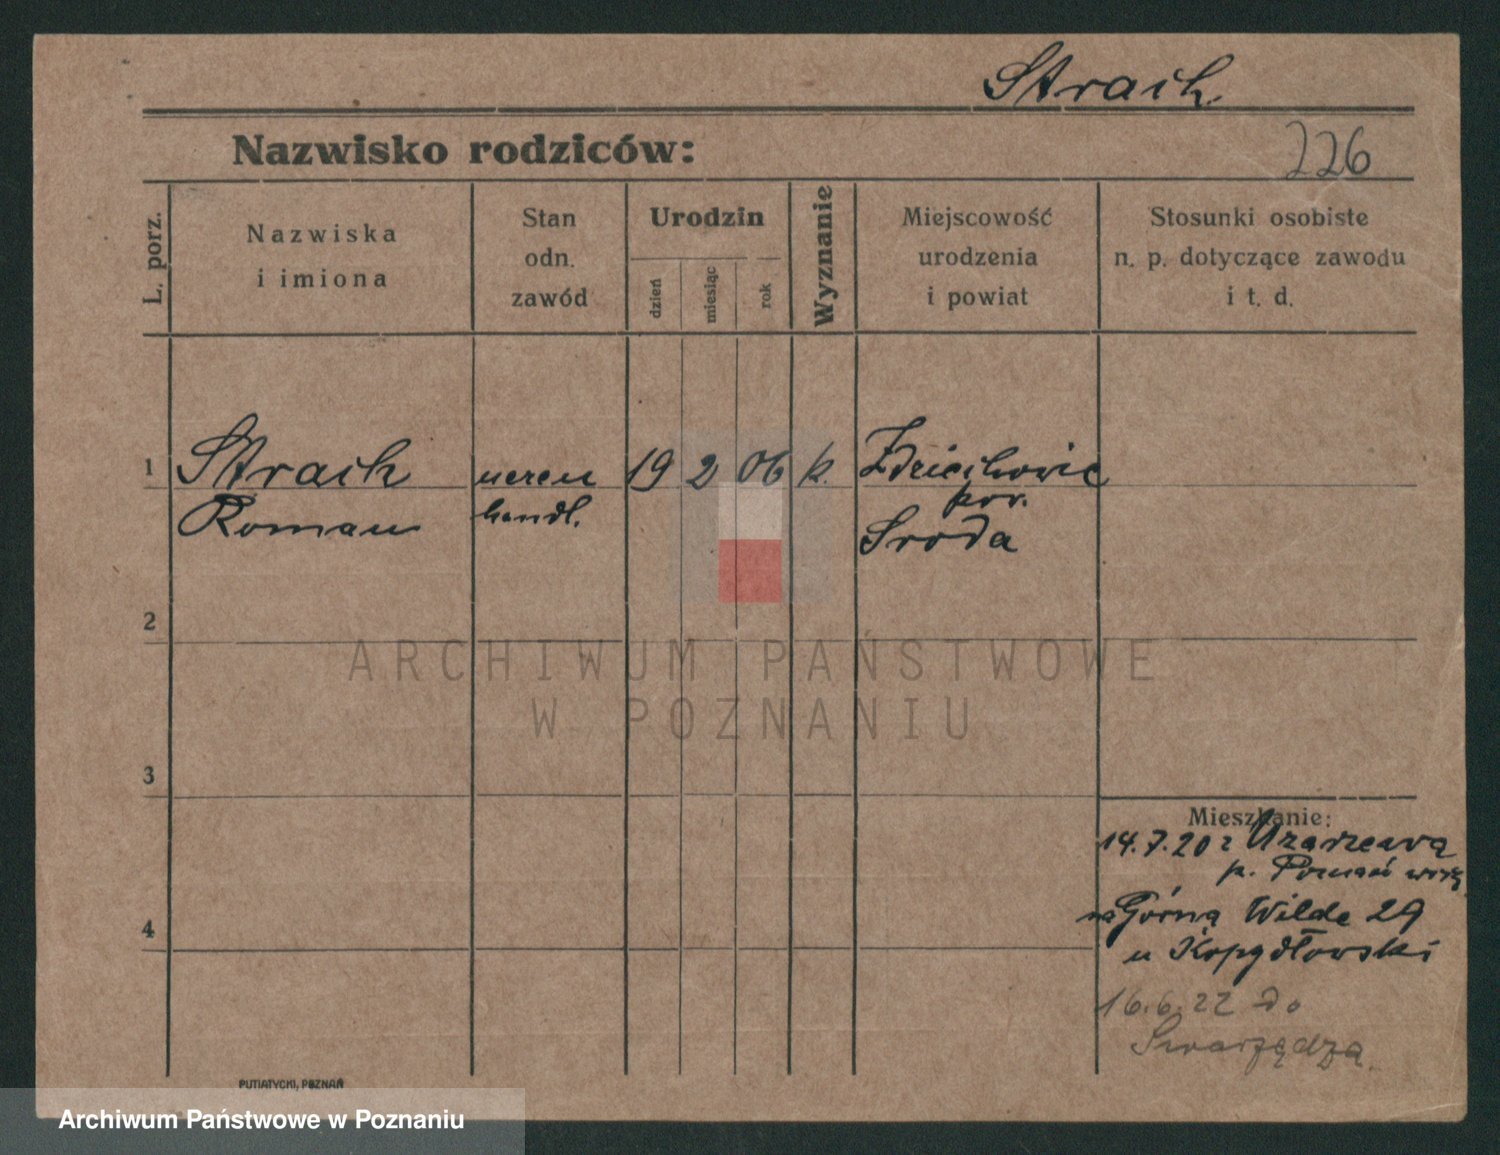 Straich
Nazwisko rodziców:
226
L. porz.
Nazwiska
i imiona
Stan
odn.
zawód
Urodzin
dzień
miesiąc
rok
Wyznanie
Miejscowość
urodzenia
i powiat
Stosunki osobiste
n. p. dotyczące zawodu
i t. d.
1
Straich
Roman
uczeń
handl.
19
2
06
k.
Zdziechowic
pow.
Sroda
2
ARCHIWUM PAŃSTWOWE
W POZNANIU
3
Mieszkanie:
14.7.20 z Uzarzewa
p. Poznań
na Górną Wilde 29
u Kopydłowski
4
16.6.22 do
Swarzędza.
PUTIATYCKI, POZNAŃ
Archiwum Państwowe w Poznaniu